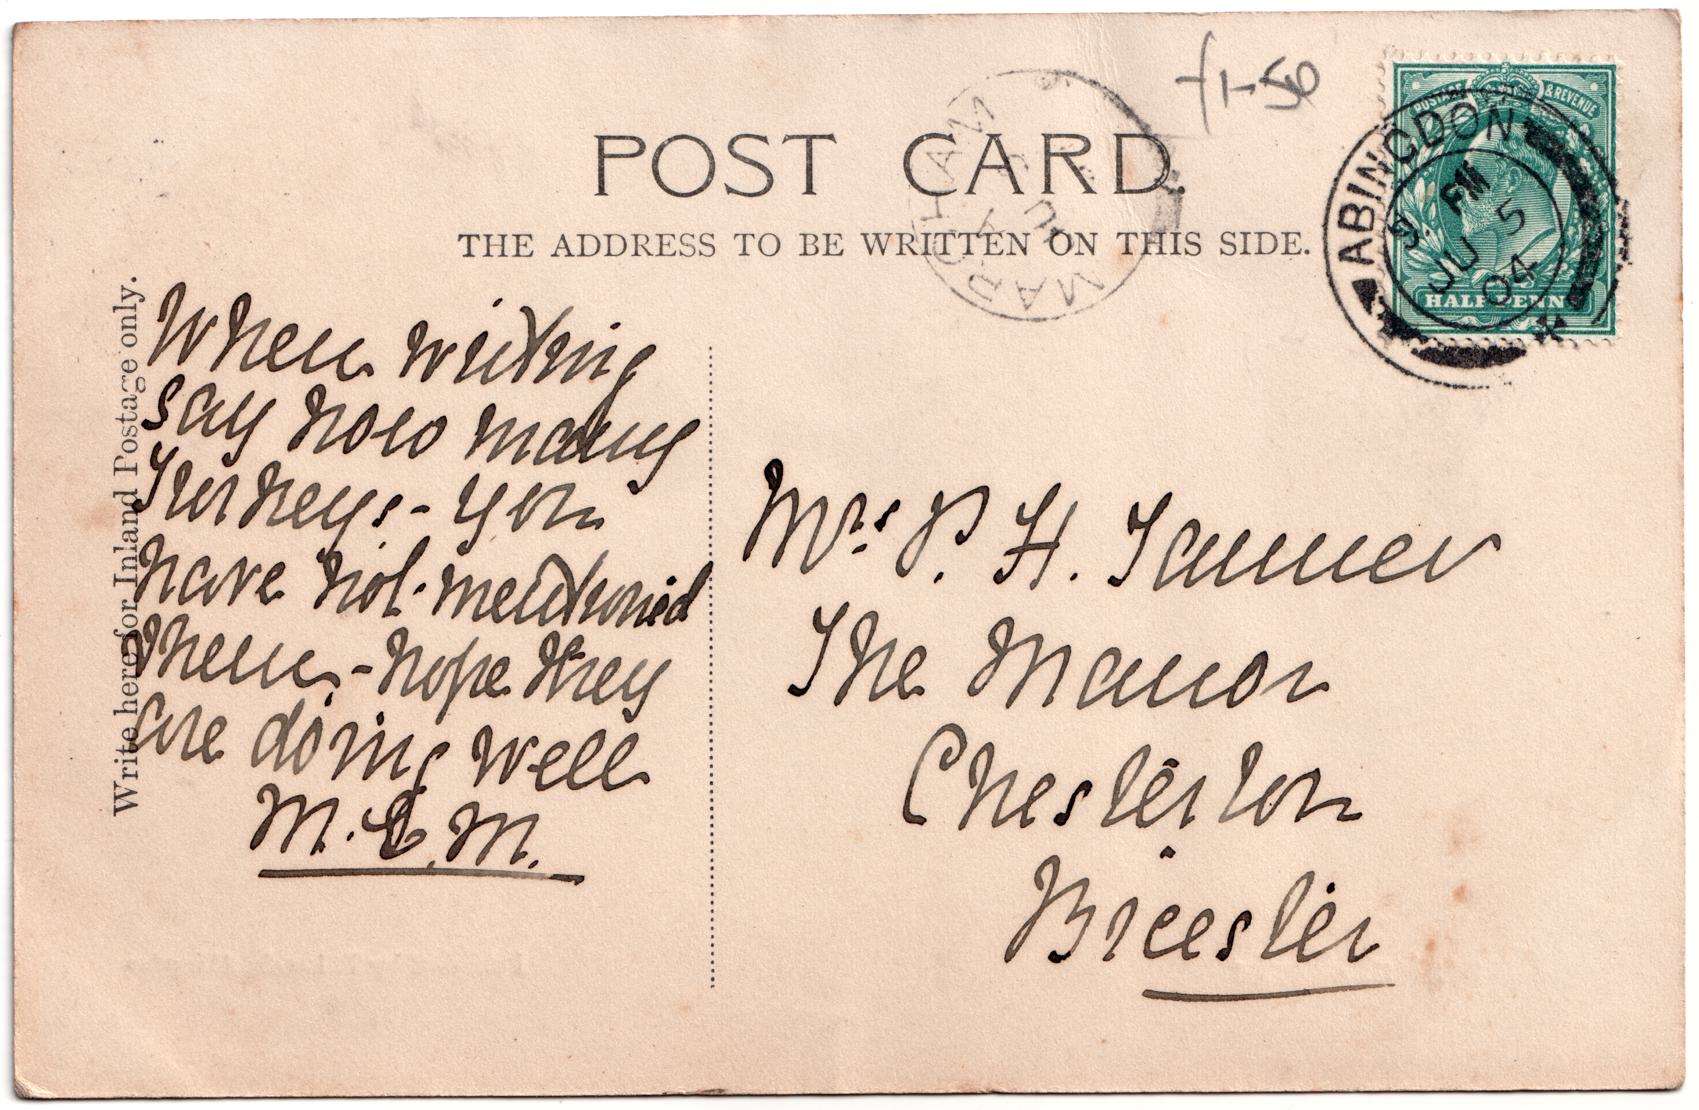 POST CARD.
THE ADDRESS TO BE WRITTEN ON THIS SIDE.
Write here for Inland Postage only.
When writing
say how many
Turkeys - you
have not mentioned
them - hope they
are doing well
M. E. M.
Mrs P. H. Tanner
The Manor
Chesterton
Bicester
POSTAGE & REVENUE
HALFPENNY
ABINGDON
PM
JU 5
04
MARCHAM
JU